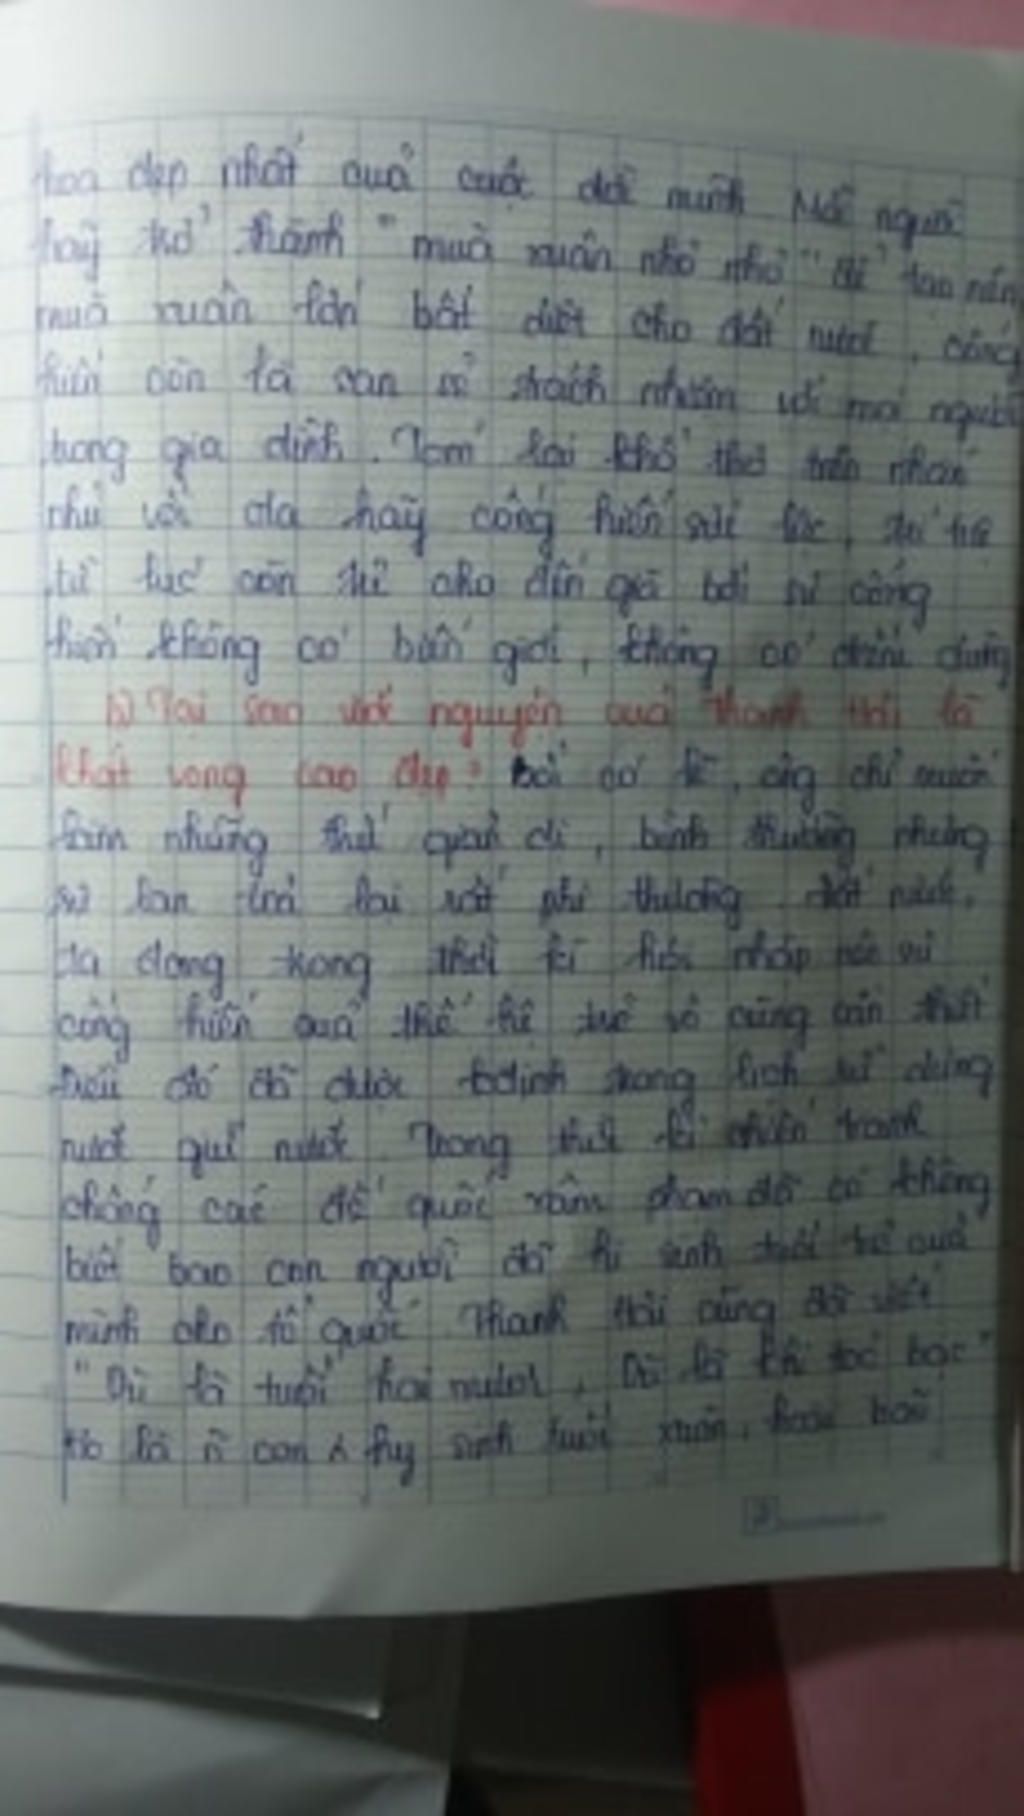 hoa đẹp nhất của cuộc đời mình Mỗi người
hãy trở thành "mùa xuân nho nhỏ" để tạo nên
mùa xuân lớn bất diệt cho đất nước, cống
hiến còn là san sẻ trách nhiệm với mọi người
trong gia đình. Tóm lại khổ thơ trên nhắn
nhủ với ta hãy cống hiến sức lực, trí tuệ
từ lúc còn trẻ cho đến già bởi sự cống
hiến không có biên giới, không có điểm dừng
b) Tại sao ước nguyện của Thanh Hải là
khát vọng cao đẹp? Bởi có lẽ, ông chỉ muốn
làm những thứ giản dị, bình thường nhưng
sự lan toả lại rất phi thường. đất nước
đa dạng trong thời kì hội nhập nên sự
cống hiến của thế hệ trẻ vô cùng cần thiết
Điều đó đã được kđịnh trong lịch sử dựng
nước giữ nước. Trong thời kì chiến tranh
chống các đế quốc xâm phạm đã có không
biết bao con người đã hi sinh tuổi trẻ của
mình cho tổ quốc. Thanh Hải cũng đã viết
"Dù là tuổi hai mươi, Dù là khi tóc bạc"
đó là con hy sinh tuổi xuân, hoài bão